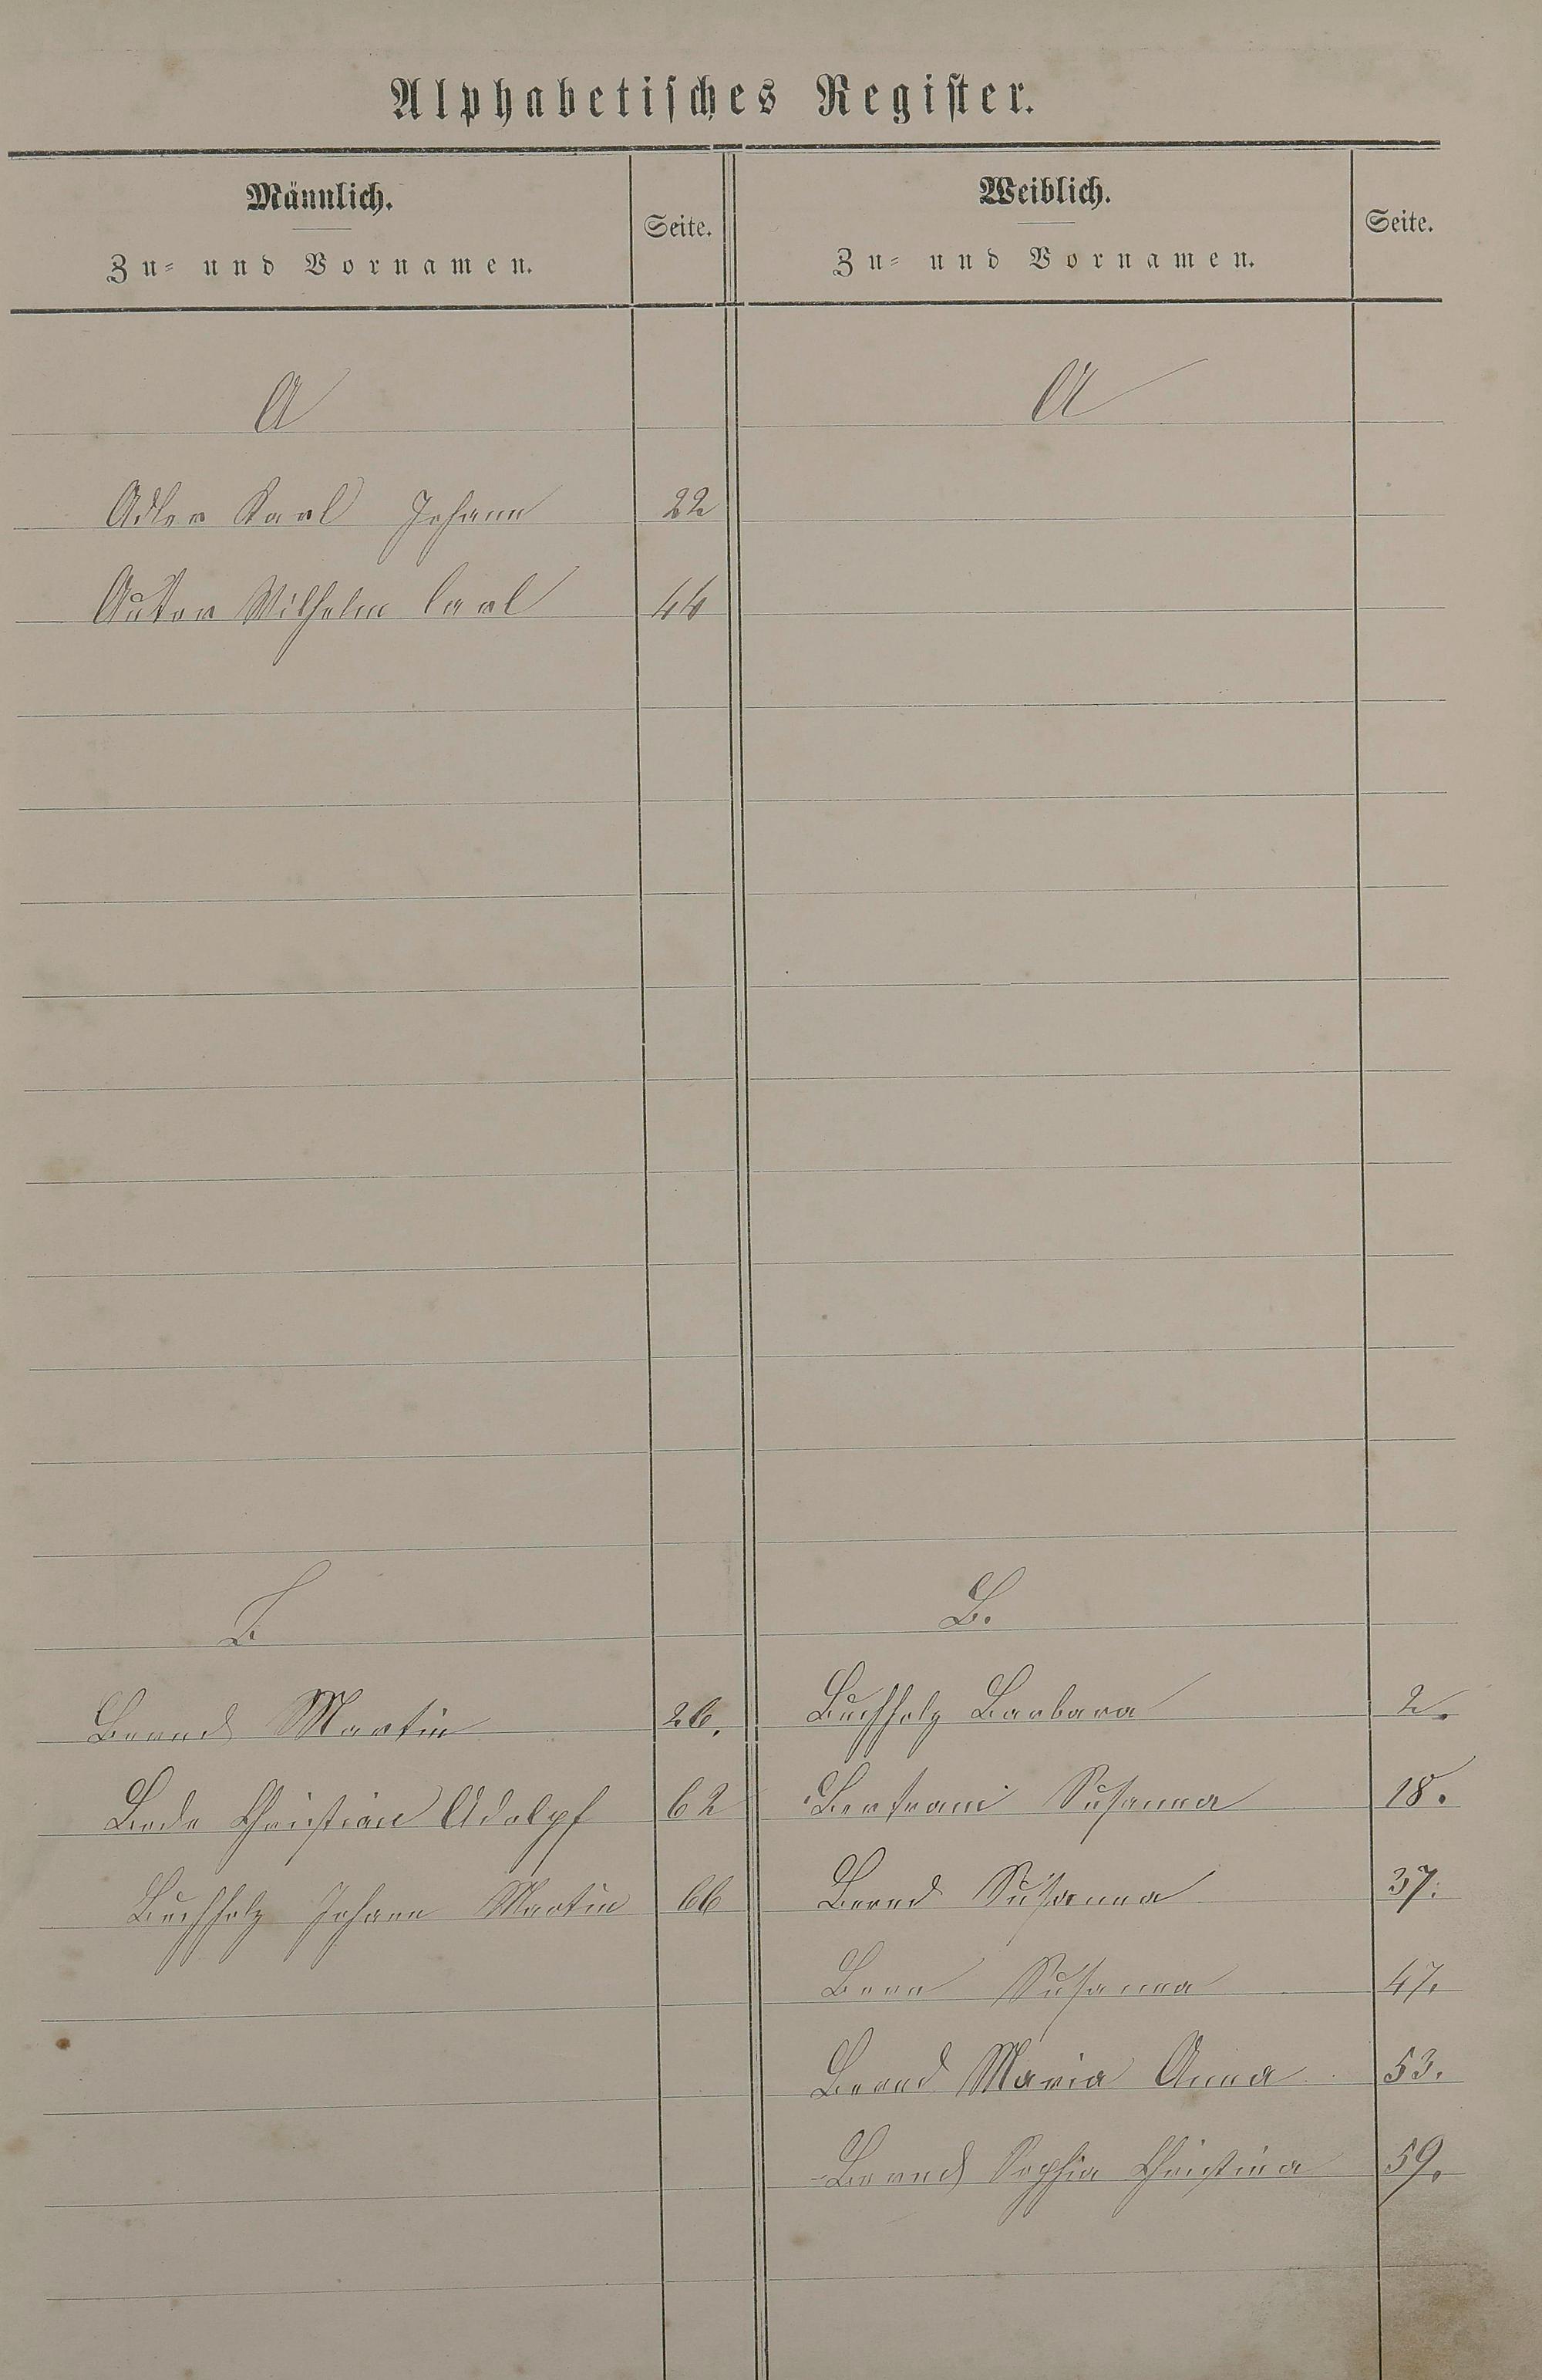 Alphabetisches Register.
Männlich.
Zu- und Vornamen.
Seite.
Weiblich.
Zu- und Vornamen.
Seite.
A
A
Adler Karl Johann 22
Wilhelm Carl 44
B.
B.
Bernd Martin 26.
Buchholz Barbara 2.
Bode Christian Adolpf 62
Bertram Susanna 18.
Buchholz Johann Martin 66
Bernd Susanna 37.
Susanna 47.
Bernd Maria Anna 53.
Bernd Sophia Christina 59.